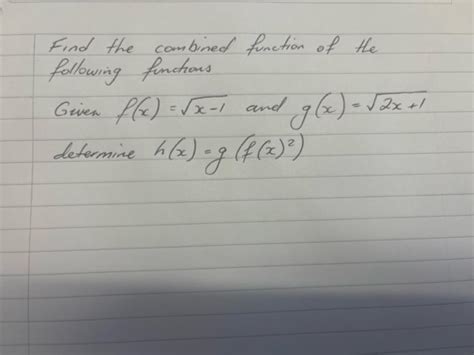 Find the combined function of the
following functions
Given f(x) = √x-1 and g(x) = √2x+1
determine h(x) = g(f(x)²)